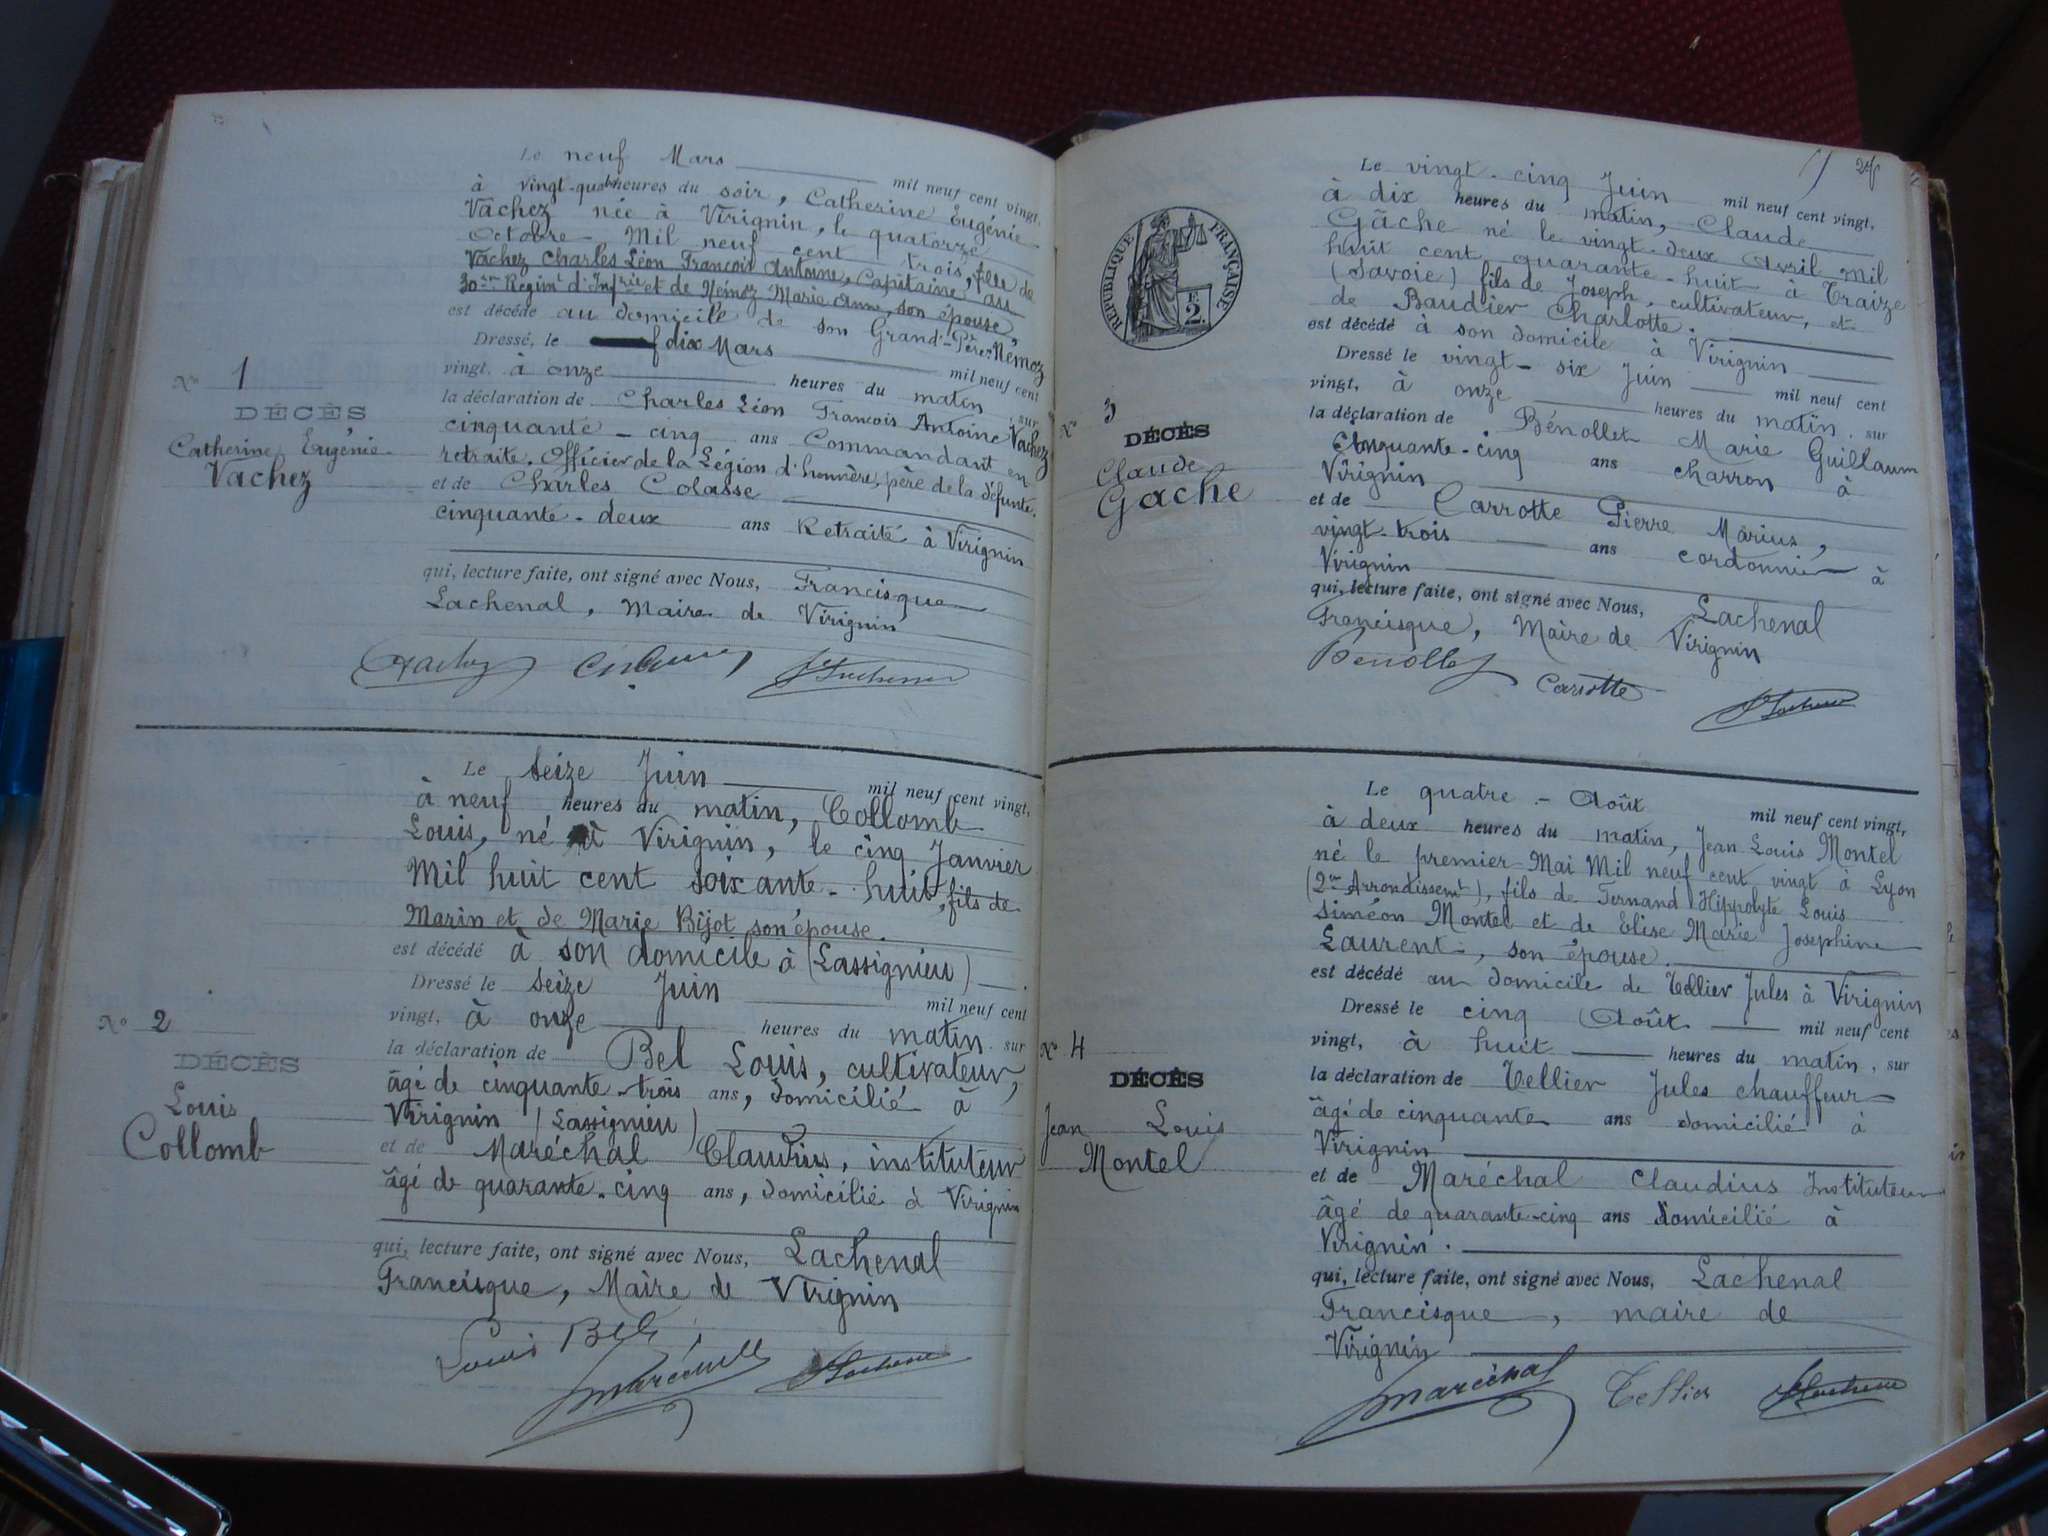 Le neuf Mars mil neuf cent vingt,
à vingt-quatre heures du soir, Catherine Eugénie
Vachez née à Virignin, le quatorze
Octobre Mil neuf cent trois, fille de
Vachez Charles Léon François Antoine, Capitaine au
30me Regimt d'Infrie et de Némoz Marie Anne, son épouse,
est décédé au domicile de son Grand-Père Némoz
Dressé, le dix Mars mil neuf cent
vingt, à onze heures du matin, sur
la déclaration de Charles Léon Francois Antoine Vachez
cinquante-cinq ans Commandant en
retraite. Officier de la Légion d'honnère, père de la défunte.
et de Charles Colasse
cinquante-deux ans Retraité à Virignin
qui, lecture faite, ont signé avec Nous, Francisque
Lachenal, Maire de Virignin
No 1
DÉCÈS
Catherine Eugénie
Vachez
Le Seize Juin mil neuf cent vingt,
à neuf heures du matin, Collomb
Louis, né à Virignin, le cinq Janvier
Mil huit cent soixante-huit, fils de
Marin et de Marie Bijot son épouse.
est décédé à son domicile à (Lassignieu)
Dressé le Seize Juin mil neuf cent
vingt, à onze heures du matin sur
la déclaration de Bel Louis, cultivateur,
âgé de cinquante-trois ans, domicilié à
Virignin (Lassignieu)
et de Maréchal Claudius, instituteur
âgé de quarante-cinq ans, domicilié à Virignin
qui, lecture faite, ont signé avec Nous, Lachenal
Francisque, Maire de Virignin
Louis Bel
No 2
DÉCÈS
Louis
Collomb
Le vingt-cinq Juin mil neuf cent vingt,
à dix heures du matin, Claude
Gâche né le vingt-deux Avril mil
huit cent quarante-huit à Traize
(Savoie) fils de Joseph, cultivateur, et
de Baudier Charlotte.
est décédé à son domicile à Virignin
Dressé le vingt-six Juin mil neuf cent
vingt, à onze heures du matin, sur
la déclaration de Bénollet Marie Guillaum
Cinquante-cinq ans charron à
Virignin
et de Carrotte Pierre Marius,
vingt-trois ans cordonnier à
Virignin
qui, lecture faite, ont signé avec Nous, Lachenal
Francisque, Maire de Virignin
Benollet
Carrotte
RÉPUBLIQUE FRANÇAISE
F.
2.
No 3
DÉCÈS
Claude
Gache
Le quatre - Août mil neuf cent vingt,
à deux heures du matin, Jean Louis Montel
né le premier Mai Mil neuf cent vingt à Lyon
(2me Arrondissemt), fils de Fernand Hippolyte Louis
Siméon Montel et de Elise Marie Josephine
Laurent, son épouse.
est décédé au domicile de Tellier Jules à Virignin
Dressé le cinq Août mil neuf cent
vingt, à huit heures du matin, sur
la déclaration de Tellier Jules chauffeur
âgé de cinquante ans domicilié à
Virignin
et de Maréchal Claudius Instituteur
âgé de quarante-cinq ans domicilié à
Virignin.
qui, lecture faite, ont signé avec Nous, Lachenal
Francisque, maire de
Virignin
Maréchal Tellier
No 4
DÉCÈS
Jean Louis
Montel